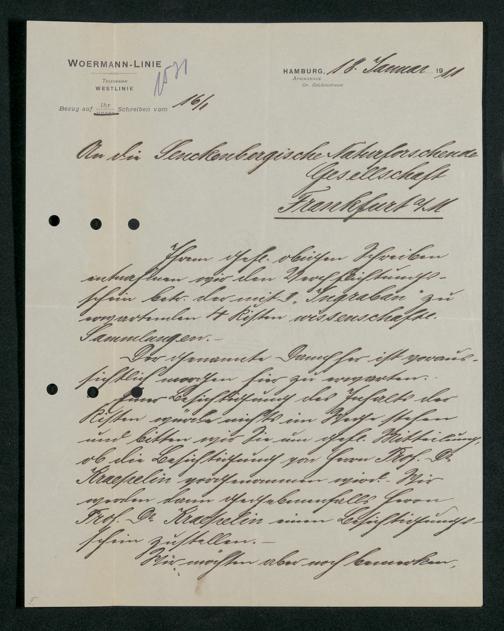 WOERMANN-LINIE
TELEGRAMM
WESTLINIE
1571
HAMBURG, 18. Januar 1911
AFRIKAHAUS
Gr. Reichenstrasse
Bezug auf Ihr Schreiben vom 16/1
An die Senckenbergische Naturforschende
Gesellschaft
Frankfurt a/M
Ihrem gefl. obigen Schreiben
entnahmen wir den Verpflichtungs-
schein betr. der mit D. "Ingraban" zu
erwartenden 4 Kisten wissenschaftl.
Sammlungen.-
Der genannte Dampfer ist voraus-
sichtlich morgen hier zu erwarten.
Einer Besichtigung des Inhalts der
Kisten würde nichts im Wege stehen
und bitten wir Sie um gefl. Mitteilung,
ob die Besichtigung von Herrn Prof. Dr.
Kraepelin vorgenommen wird. Wir
werden dann gegebenenfalls Herrn
Prof. Dr. Kraepelin einen Besichtigungs-
schein zustellen.-
Wir möchten aber noch bemerken,